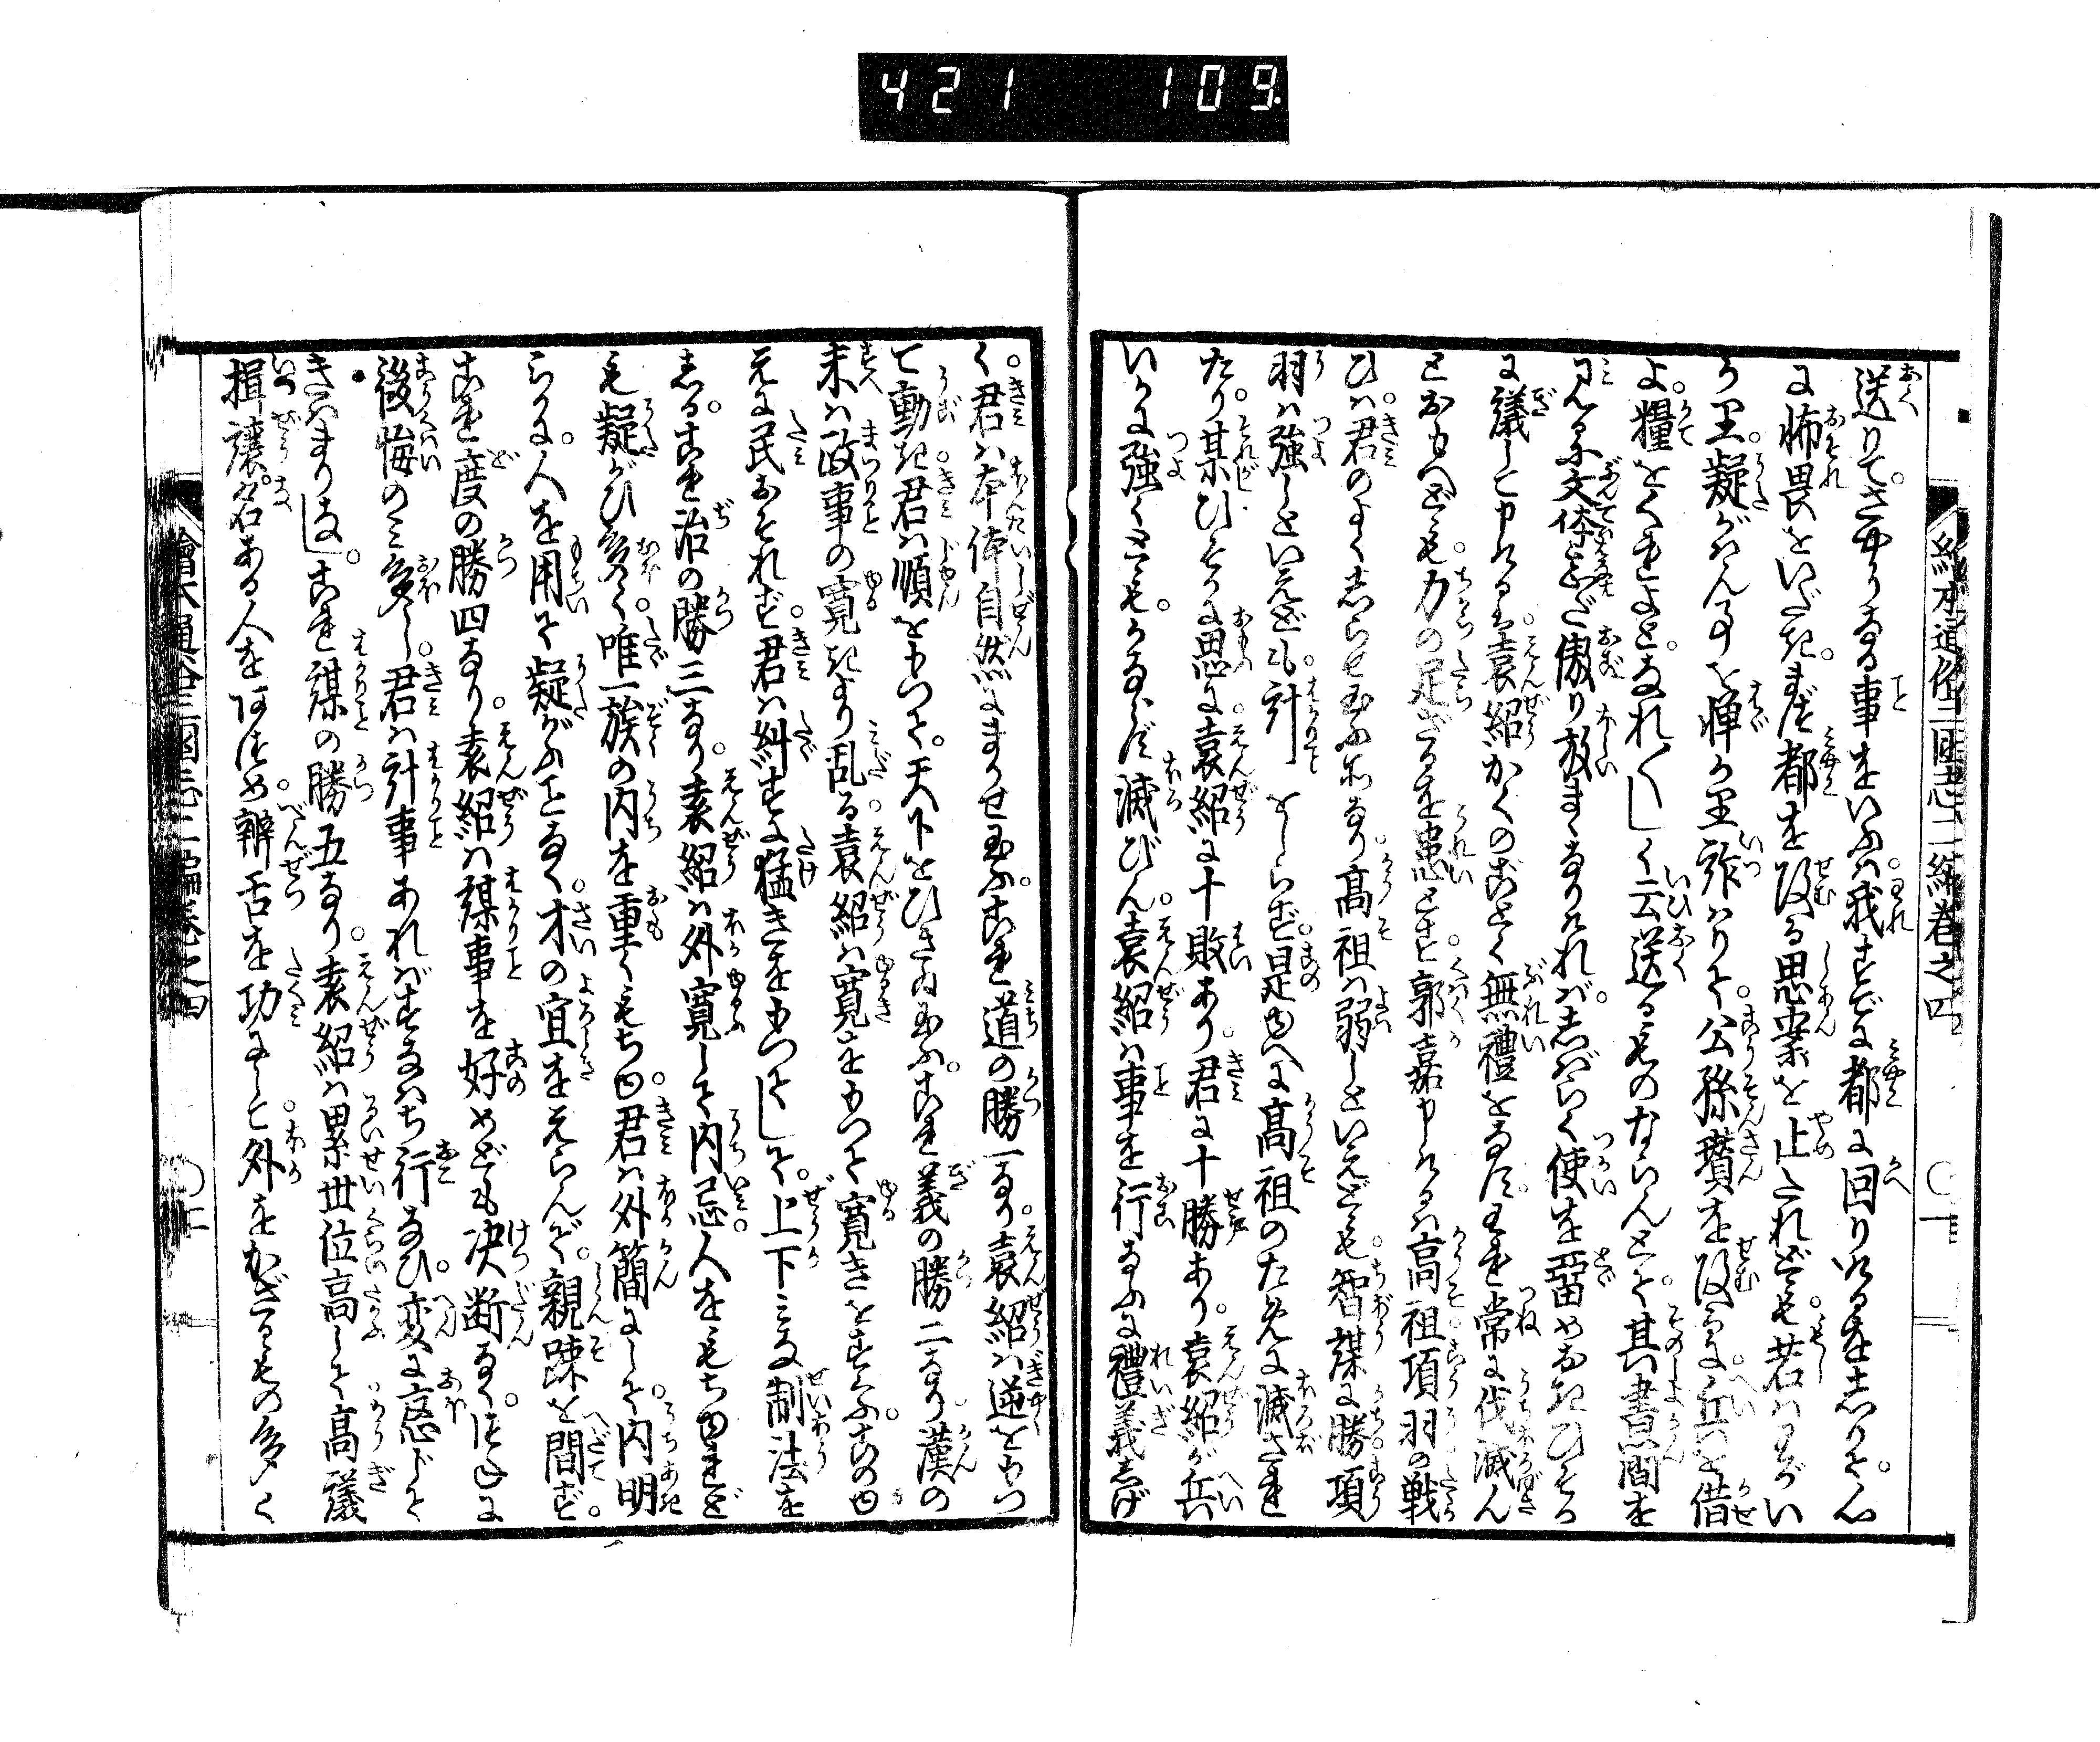 421 109.
繪本通俗三國志二編卷之四 〇一
送りて。さやうなる事をいふハ。我すでに都に回りけるを志りて。心
に怖畏をいだき。まづ都を攻る思案を止たれども。若ハわがい
まだ疑がハん事を憚り
よ。糧をくれよと。なれ〳〵しく云送るものならんとて。其書簡を
みるに文体ことバ傲り放まゝなりけれバ。志バらく使を留めおきひそか
に議して申けるハ。袁紹かくのごとく無禮をなす。われ常に伐滅さん
とおもへども。力の足ざるを患とす。郭嘉申けるハ高祖項羽の戦
ひハ。君のよく志らせ玉ふ所なり。高祖ハ弱しといえども。智謀に勝。項
羽ハ強しといえども。計をしらず。是ゆへに高祖のために滅され
たり。某ひそかに思に。袁紹に十敗あり。君に十勝あり。袁紹が兵
いかに強くとも。かならず滅びん。袁紹ハ事を行なふに禮義志げ
く。君ハ本体自然にまかせ玉ふ。これ道の勝一なり。袁紹ハ逆をもつ
て動き。君ハ順をもつて。天下をひきゐ玉ふ。これ義の勝二なり。漢の
末ハ政事の寛きより乱る。袁紹ハ寛をもつて寛きをすくふ。このゆ
えに民おそれず。君ハ糾すに猛きをもつてして。上下みな制法を
志る。これ治の勝三なり。袁紹ハ外寛して内忌。人をもちゆれど
も疑がひ多く。唯一族の内を重くもちゆ。君ハ外簡にして。内明
らかに。人を用て疑がふことなく。才の宜をえらんで。親疎を間ず。
これ度の勝四なり。袁紹ハ謀事を好めども決断なく。つねに
後悔のミ多し。君ハ計事あれバすなハち行なひ。変に應じて
きハまりなし。これ謀の勝五なり。袁紹ハ累世位高して。高議
揖讓。名ある人をあつめ。辨舌を功にして。外をかざるもの多く
繪本通俗三國志二編卷之四 〇二